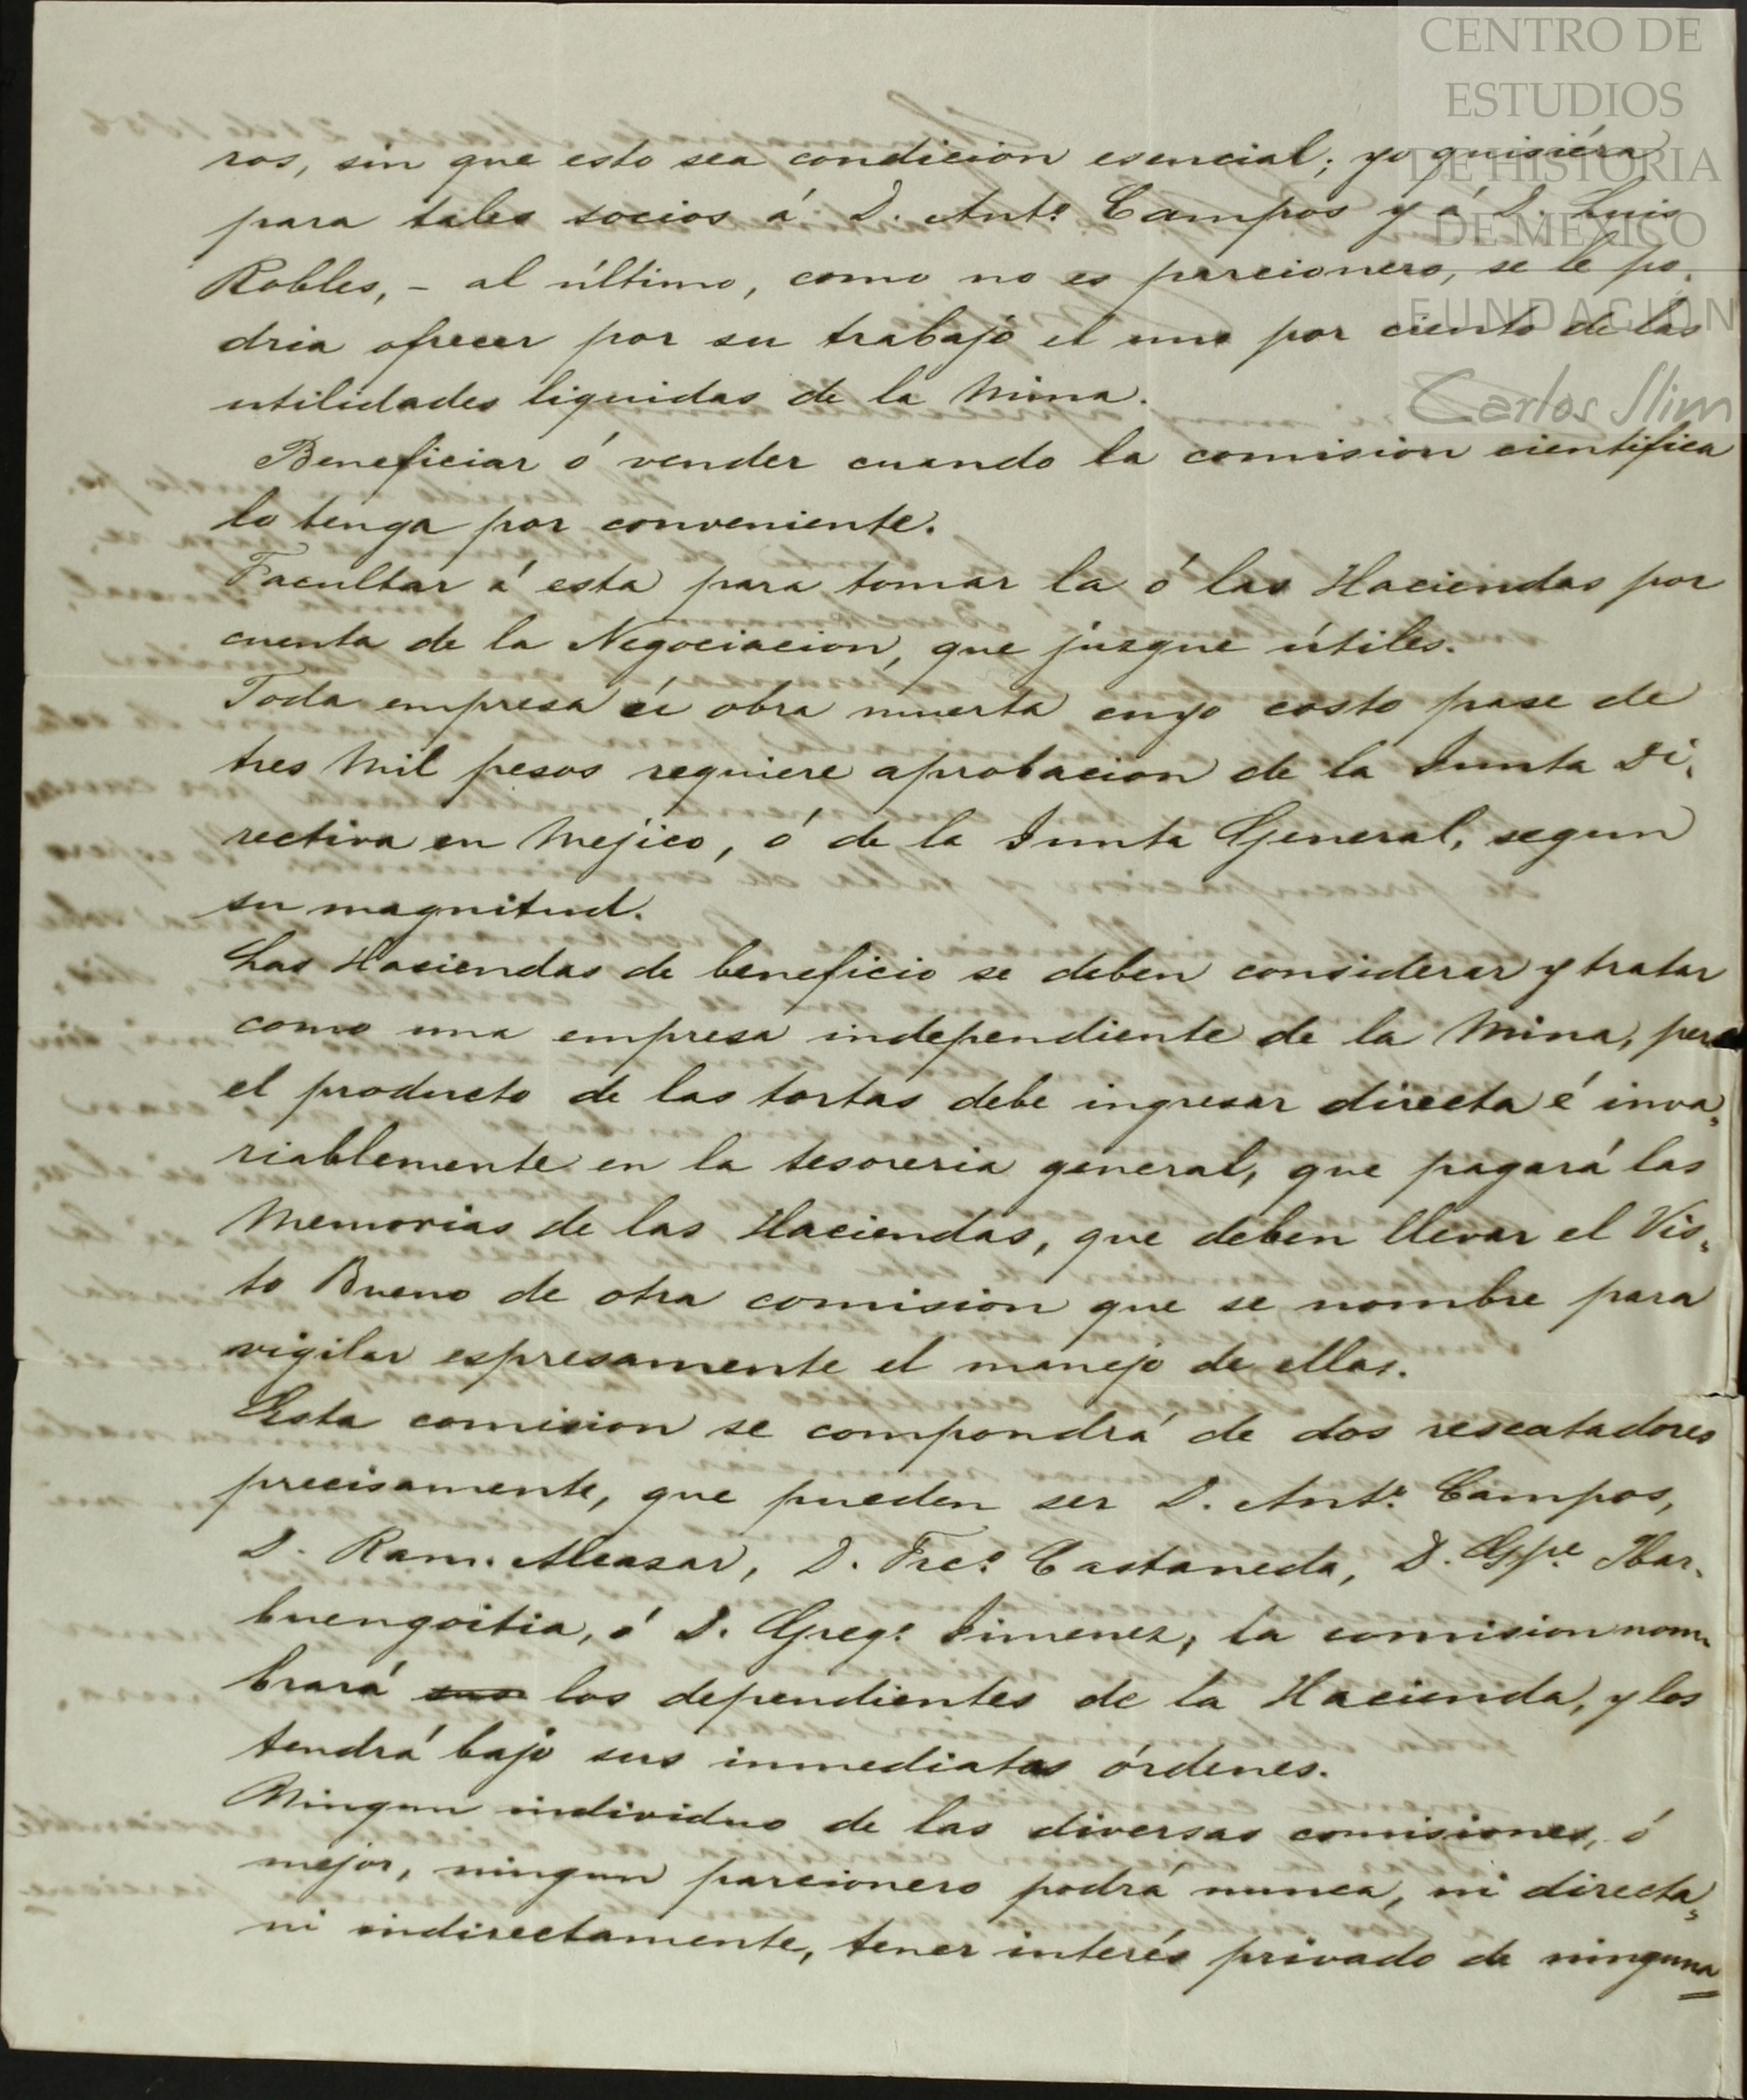 CENTRO DE
ESTUDIOS
DE HISTORIA
DE MÉXICO
FUNDACIÓN
Carlos Slim
ros, sin que esto sea condicion esencial; yo quisiéra
para tales socios á D. Antº Campos y á D. Luis
Robles, – al último, como no es parcionero, se le po-
dria ofrecer por su trabajo el uno por ciento de las
utilidades liquidas de la Mina.
Beneficiar ó vender cuando la comision cientifica
lo tenga por conveniente.
Facultar á esta para tomar la ó las Haciendas por
cuenta de la Negociacion, que juzgue útiles.
Toda empresa ú obra muerta cuyo costo pase de
tres Mil pesos requiere aprobacion de la Junta Di-
rectiva en Mejico, ó de la Junta General, segun
su magnitud.
Las Haciendas de beneficio se deben considerar y tratar
como una empresa independiente de la Mina, pero
el producto de las tortas debe ingresar directa é inva-
riablemente en la tesoreria general, que pagará las
Memorias de las Haciendas, que deben llevar el Vis-
to Bueno de otra comision que se nombre para
vigilar espresamente el manejo de ellas.
Esta comision se compondrá de dos rescatadores
precisamente, que pueden ser D. Antº Campos,
D. Ram. Alcasar, D. Frcº Castaneda, D. Gpe Ibar-
buengoitia, ó D. Gregº Jimenez, la comision nom-
brará sus los dependientes de la Hacienda, y los
tendrá bajo sus inmediatas órdenes.
Ningun individuo de las diversas comisiones, ó
mejor, ningun parcionero podrá nunca, ni directa-
ni indirectamente, tener interés privado de ninguna